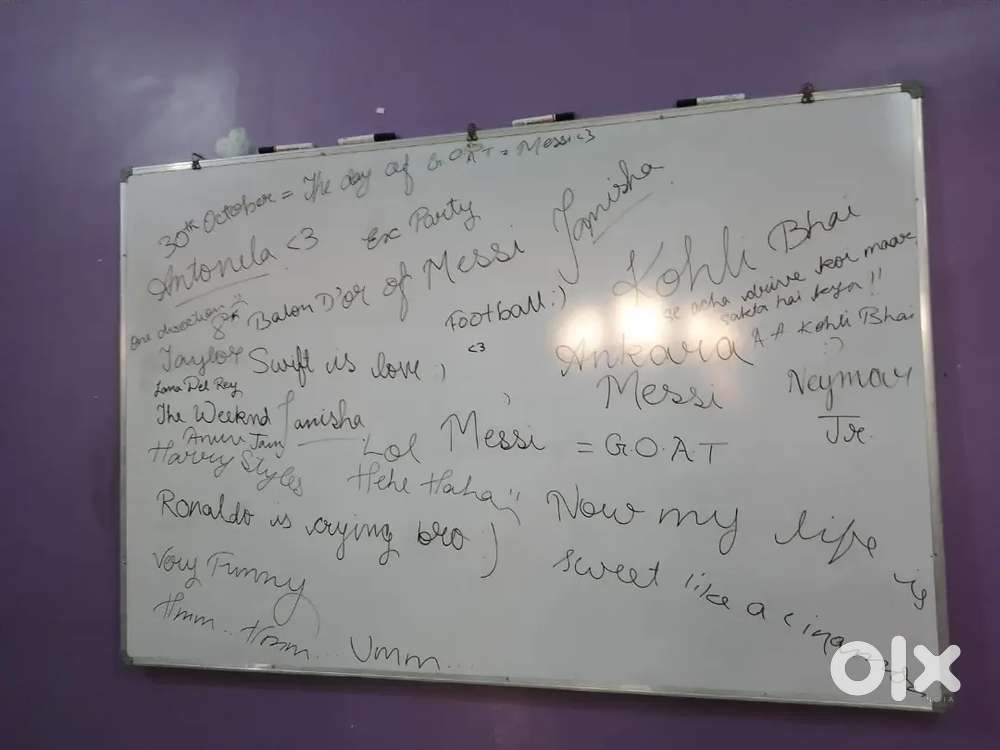 30th October = The day of G.O.A.T = Messi <3
Antonela <3 Ex Party Janisha
One direction :)
8 Balon D'or of Messi Football :) Kohli Bhai
se acha drive koi maar
sakta hai kya !!
Taylor Swift is love :) <3 Ankara Kohli Bhai :)
Lana Del Rey Messi Neymar
The Weeknd Janisha Jr.
Lol Messi = G.O.A.T
Harry Styles Hehe Haha
Ronaldo is crying bro :) Now my life is
Very Funny sweet like a
Hmm.. Hmm... Umm...
olx